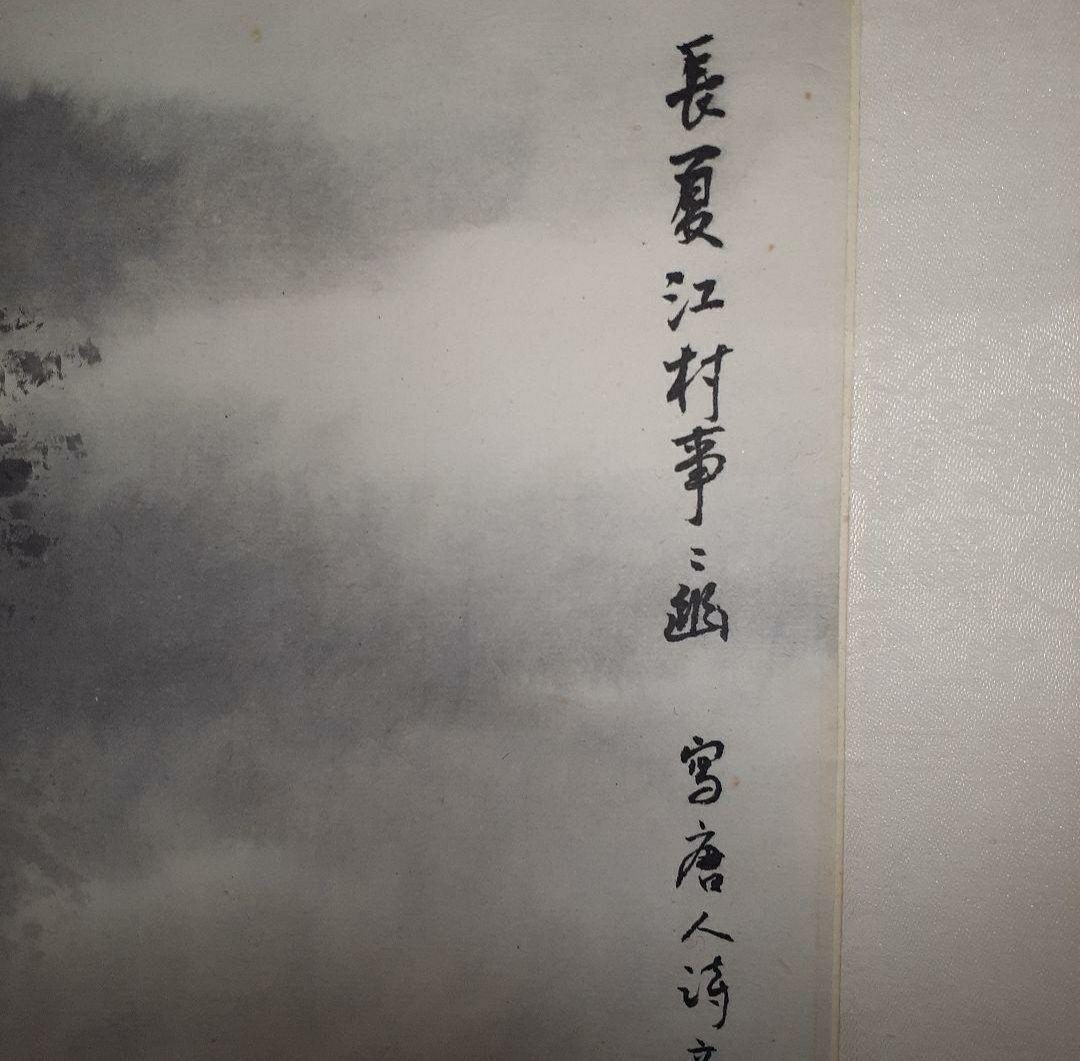 長夏江村事〻幽 寫唐人詩